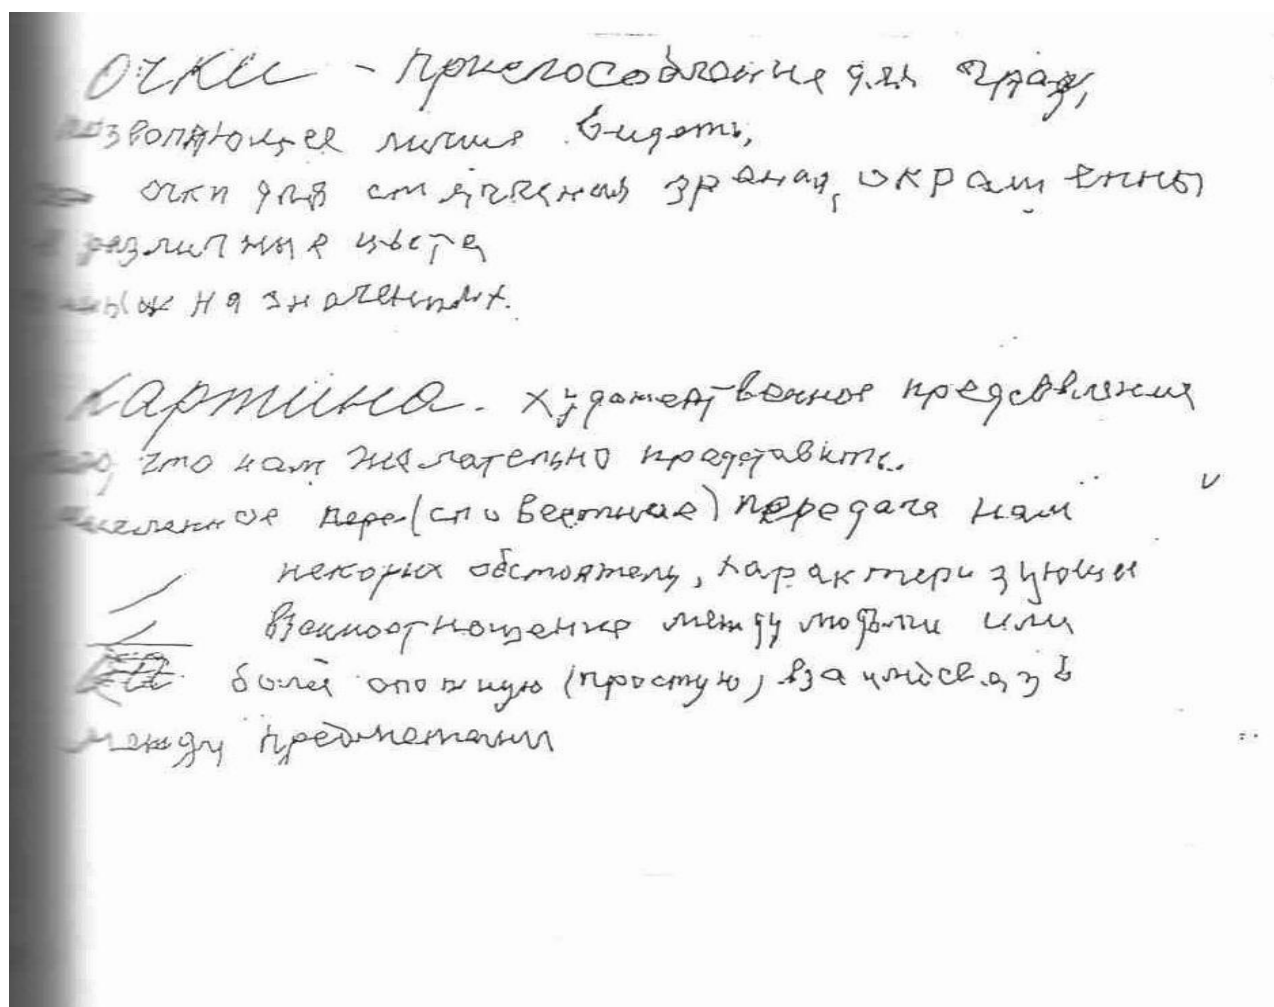 очки - приспособление для глаз,
позволяющее лучше видеть,
очки для смягчения зрения, окрашенны
в различные цвета
на значениях.
Картина. художественное предсвления
что нам желательно представить.
пере (словестные) передача нам
некорих обстоятель, характеризующи
взаимоотношение между людьми или
более сложную (простую) взаимосвязь
между предметами